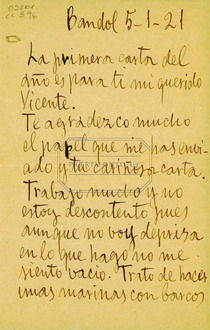 Bandol 5-1-21
La primera carta del
año es para ti mi querido
Vicente.
Te agradezco mucho
el papel que me has envi-
ado y tu cariñosa carta.
Trabajo mucho y no
estoy descontento pues
aunque no voy deprisa
en lo que hago no me
siento vacío. Trato de hacer
unas marinas con barcos